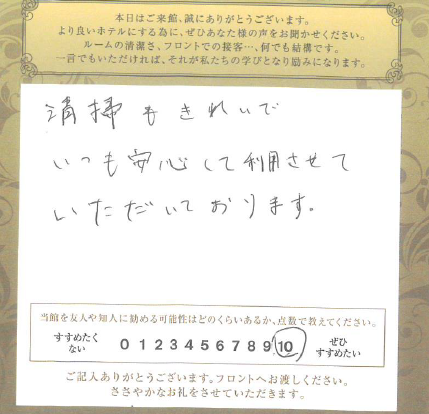 本日はご来館、誠にありがとうございます。
より良いホテルにする為に、ぜひあなた様の声をお聞かせください。
ルームの清潔さ、フロントでの接客…、何でも結構です。
一言でもいただければ、それが私たちの学びとなり励みになります。
清掃もきれいで
いつも安心して利用させて
いただいております。
当館を友人や知人に勧める可能性はどのくらいあるか、点数で教えてください。
すすめたく
ない
0 1 2 3 4 5 6 7 8 9 10
ぜひ
すすめたい
ご記入ありがとうございます。フロントへお渡しください。
ささやかなお礼をさせていただきます。